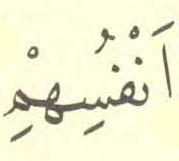 اَنْفُسِهِمْ